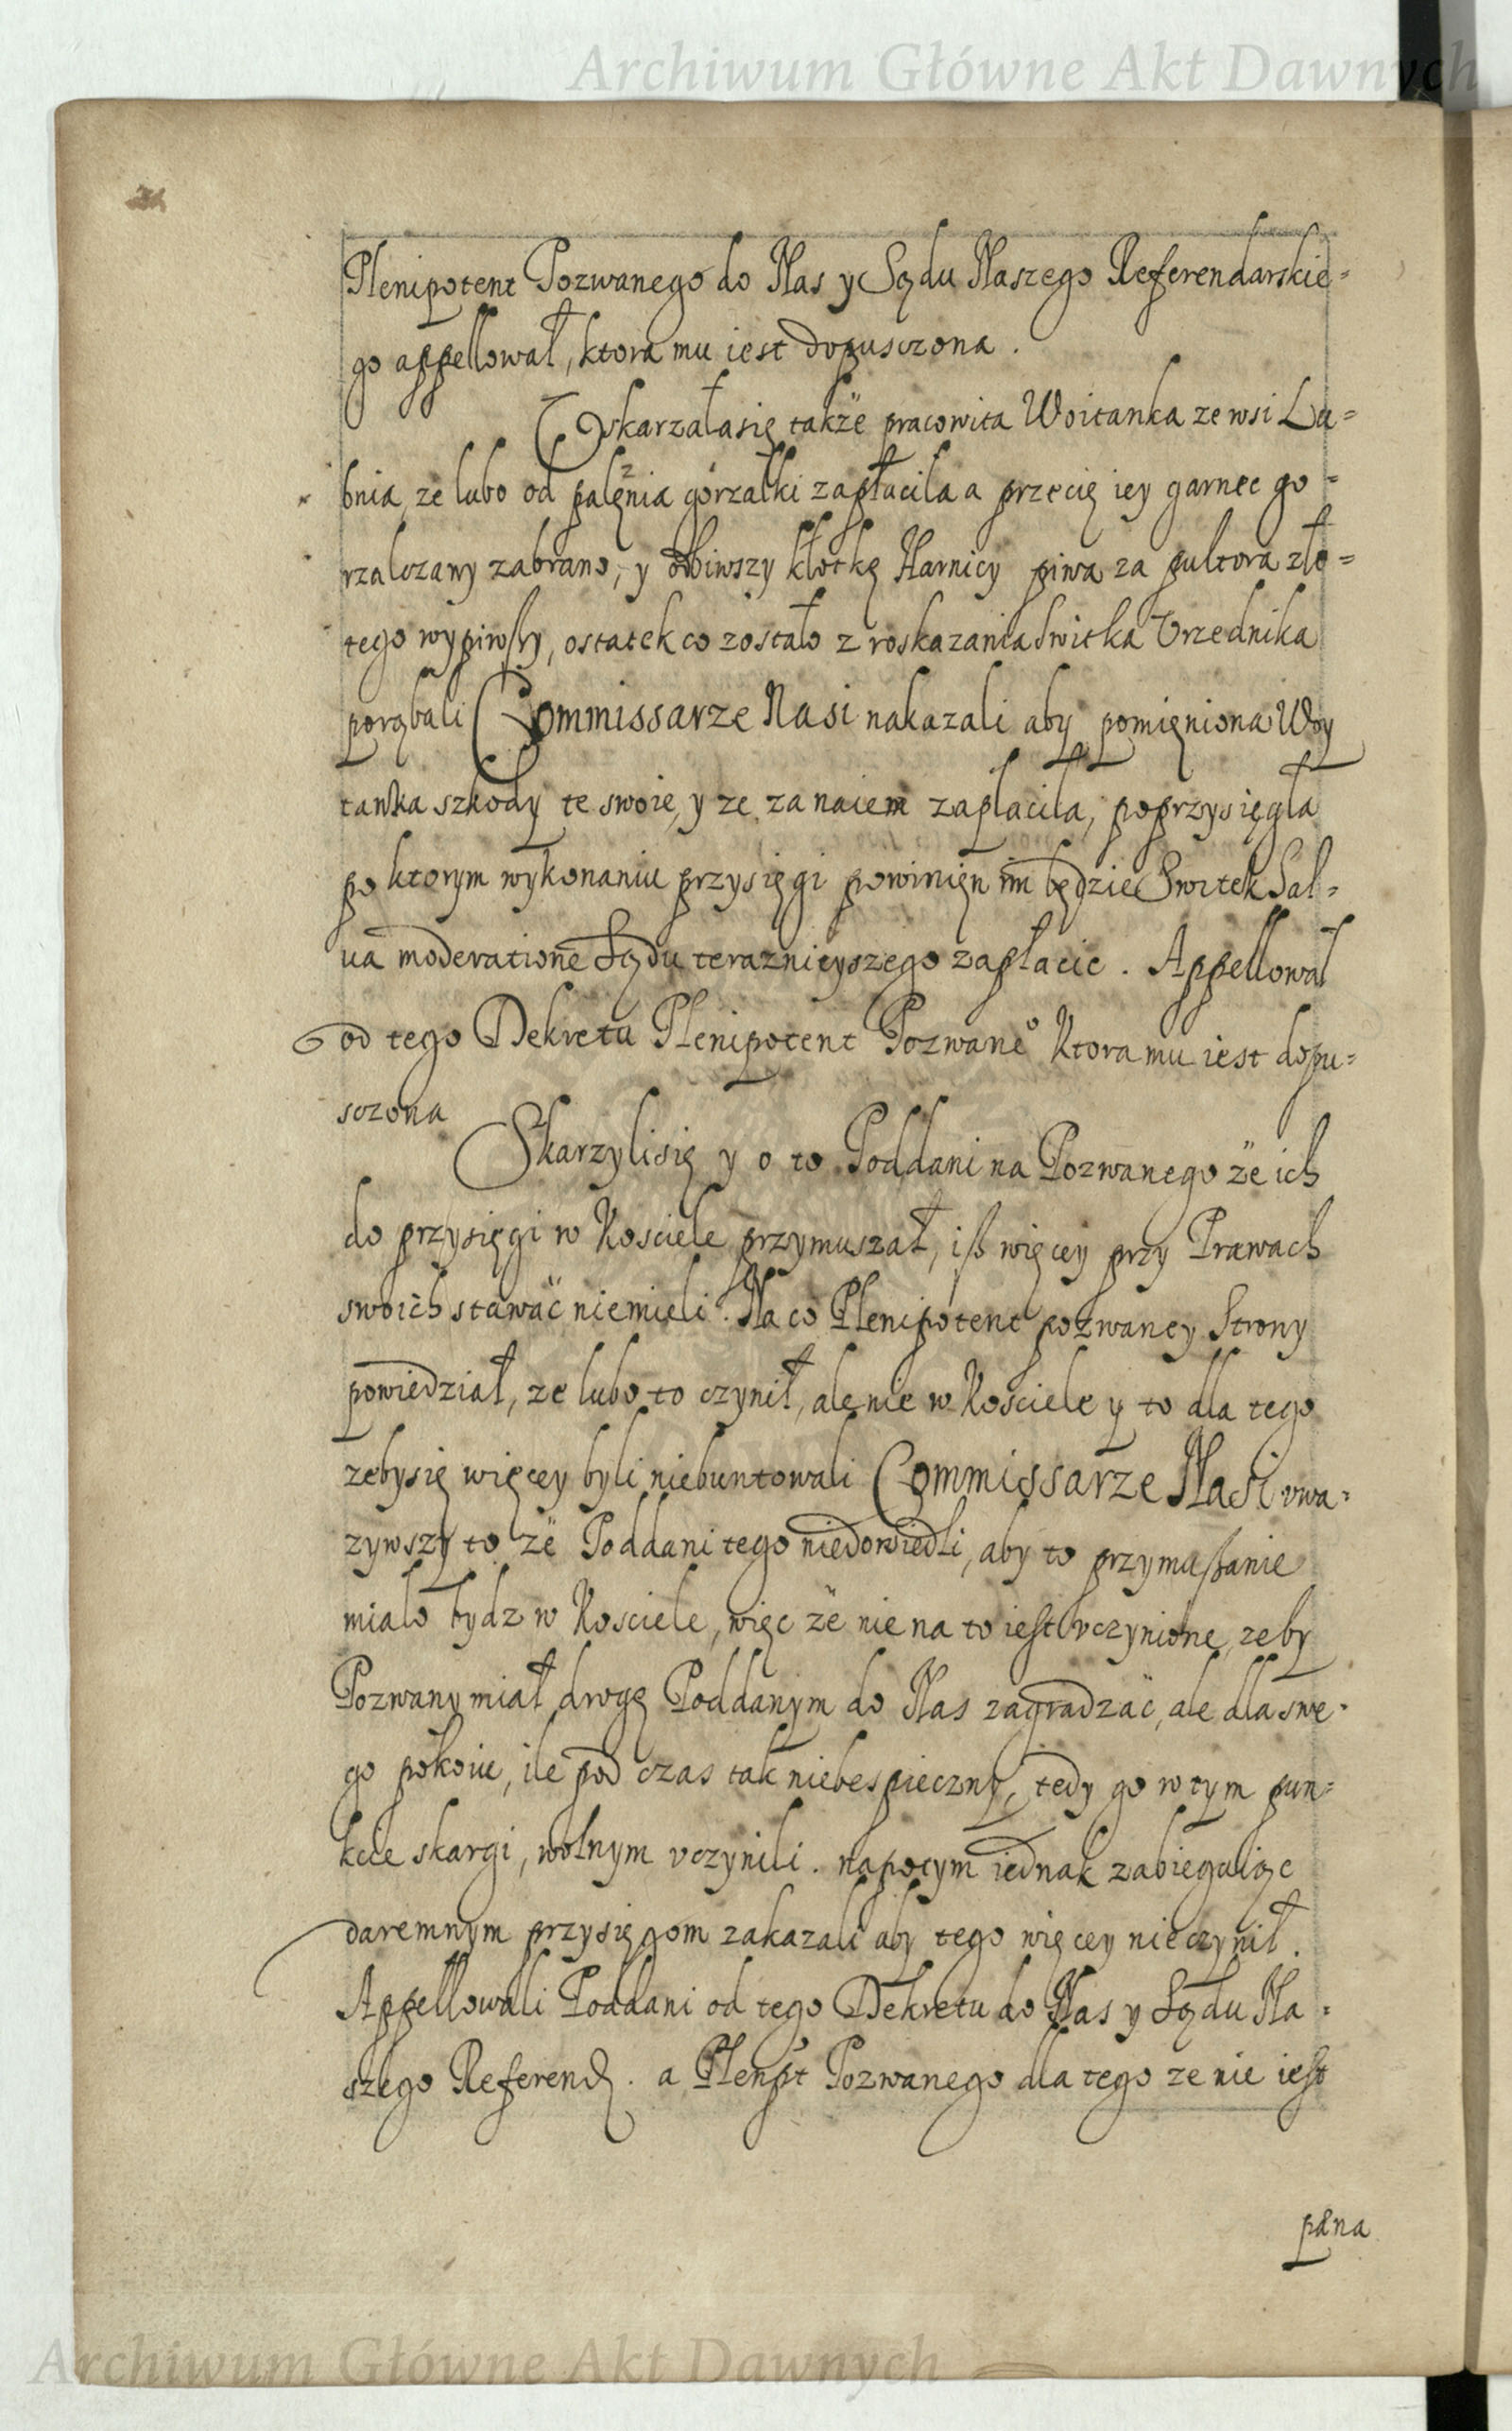 Archiwum Główne Akt Dawnych
Plenipotent Pozwanego do Nas y Sądu Naszego Referendarskie=
go appellował, ktora mu iest dopusczona.
Uskarzała się takze pracowita Woitanka ze wsi La=
bnia, ze lubo od palęnia górzałki zapłacila a przecię iey garnec go=
rzalczany zabrano, y odbiwszy kłotkę Harnicy piwa za pultora zło=
tego wypiwszy, ostatek co zostało z roskazania Switka Vrzednika
porąbali Commissarze Nasi nakazali aby pomięniona Woy
tanka szkody te swoie, y ze za naiem zaplacila, poprzysięgła
po ktorym wykonaniu przysięgi powinięn im będzie Switek Sal=
ua moderatione Sądu teraznieyszego zapłacic. Appellował
od tego Dekretu Plenipotent Pozwane° ktora mu iest dopu=
sczona
Skarzyli się y o to Poddani na Pozwanego ze ich
do przysięgi w Kosciele przymuszał, iß więcey przy Prawach
swoich stawać niemieli. Na co Plenipotent pozwaney Strony
powiedział, ze lubo to czynił, ale nie w Kosciele y to dla tego
zeby się więcey byli niebuntowali Commissarze Nasi vwa=
zywszy to ze Poddani tego niedowiedli, aby to przymußanie
mialo bydz w Kosciele, więc ze nie na to iest vczynione, zeby
Pozwany miał drogę Poddanym do Nas zagradzać, ale dla swe=
go pokoiu, ile pod czas tak niebespieczny, tedy go w tym pun=
kcie skargi, wolnym vczynili. napotym iednak zabiegaiąc
daremnym przysięgom zakazali aby tego więcey nie czynił.
Appellowali Poddani od tego Dekretu do Nas y Sądu Na=
szego Referend. a Plenpt Pozwanego dla tego ze nie iest
pana
Archiwum Główne Akt Dawnych